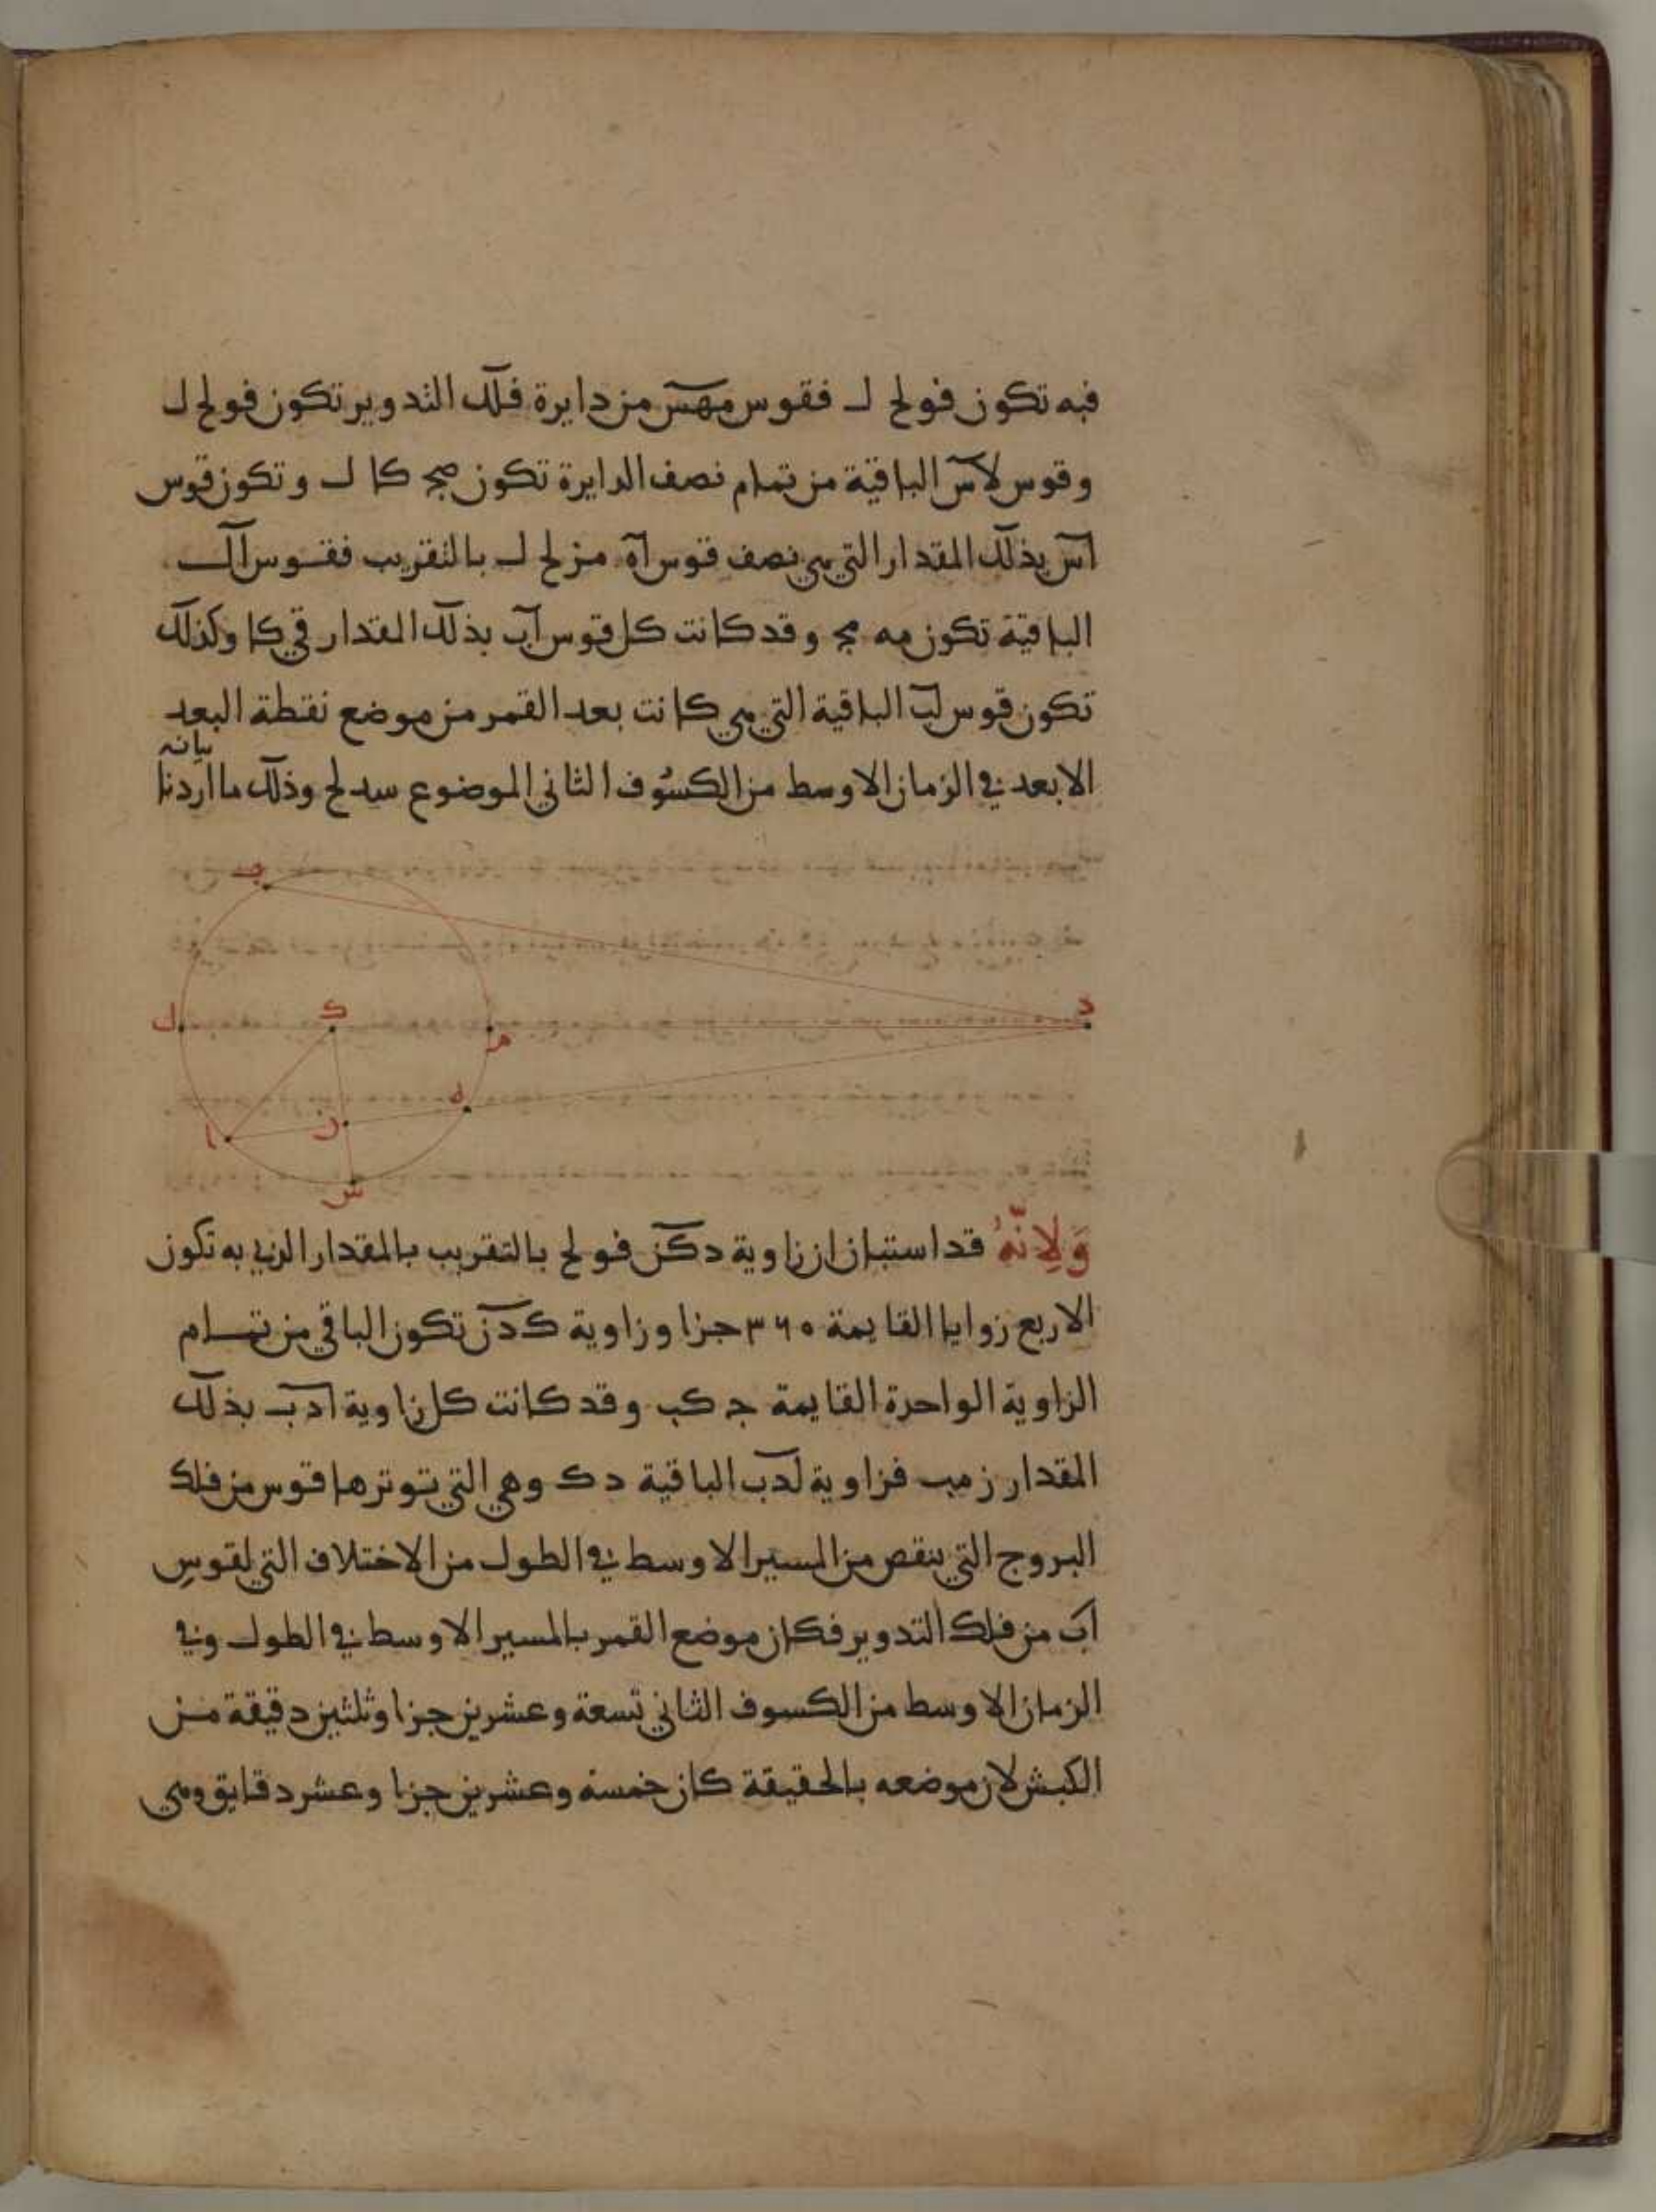 فيه تكون فو لح ل فقوس مهس من دايرة فلك التدوير تكون فو لح ل
وقوس لاس الباقية من تمام نصف الدايرة تكون صج كا ل وتكون قوس
اس بذلك المقدار التي هي نصف قوس اه مز لح ل بالتقريب فقوس ال
الباقية تكون مه مج وقد كانت كل قوس اب بذلك المقدار قي كا وكذلك
تكون قوس لب الباقية التي هي كانت بعد القمر من موضع نقطة البعد
الابعد في الزمان الاوسط من الكسوف الثاني الموضوع سد لح وذلك ما اردنا
بيانه
ب
د
ل
ك
م
ه
ا
ن
س
وَلِانّهُ قد استبان ان زاوية دكن فو لح بالتقريب بالمقدار الذي به تكون
الاربع زوايا القايمة ٣٦٠ جزا وزاوية كدن تكون الباقي من تمام
الزاوية الواحدة القايمة ج كب وقد كانت كل زاوية ادب بذلك
المقدار ز مب فزاوية لدب الباقية د ك وهي التي توترها قوس من فلك
البروج التي ينقص من المسير الاوسط في الطول من الاختلاف التي لقوس
اب من فلك التدوير فكان موضع القمر بالمسير الاوسط في الطول وفي
الزمان الاوسط من الكسوف الثاني تسعة وعشرين جزا وثلثين دقيقة من
الكبش لان موضعه بالحقيقة كان خمسة وعشرين جزا وعشر دقايق وهي